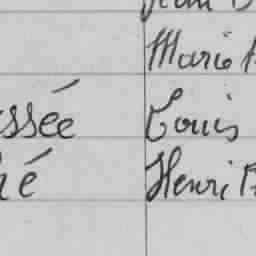 Jean
Marie
ssée Louis
hé Henri